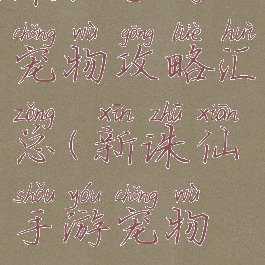 chǒng wù gōng lüè huì
宠物攻略汇
zǒng xīn zhū xiān
总(新诛仙
shǒu yóu chǒng wù
手游宠物